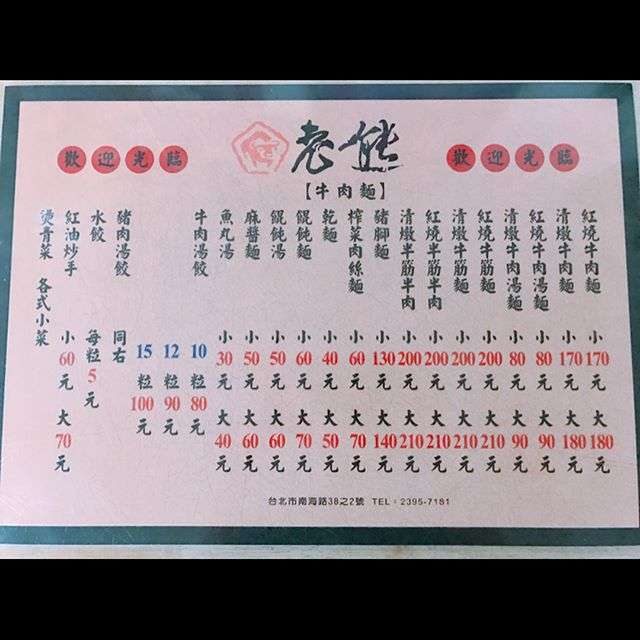 歡迎光臨
老熊
歡迎光臨
【牛肉麵】
紅燒牛肉麵 小170元 大180元
清燉牛肉麵 小170元 大180元
紅燒牛肉湯麵 小80元 大90元
清燉牛肉湯麵 小80元 大90元
紅燒牛筋麵 小200元 大210元
清燉牛筋麵 小200元 大210元
紅燒半筋半肉 小200元 大210元
清燉半筋半肉 小200元 大210元
豬腳麵 小130元 大140元
榨菜肉絲麵 小60元 大70元
乾麵 小40元 大50元
餛飩麵 小60元 大70元
餛飩湯 小50元 大60元
麻醬麵 小50元 大60元
魚丸湯 小30元 大40元
牛肉湯餃 10粒80元
12粒90元
15粒100元
豬肉湯餃 同右
水餃 每粒5元
紅油炒手 小60元 大70元
燙青菜 各式小菜
台北市南海路38之2號 TEL：2395-7181